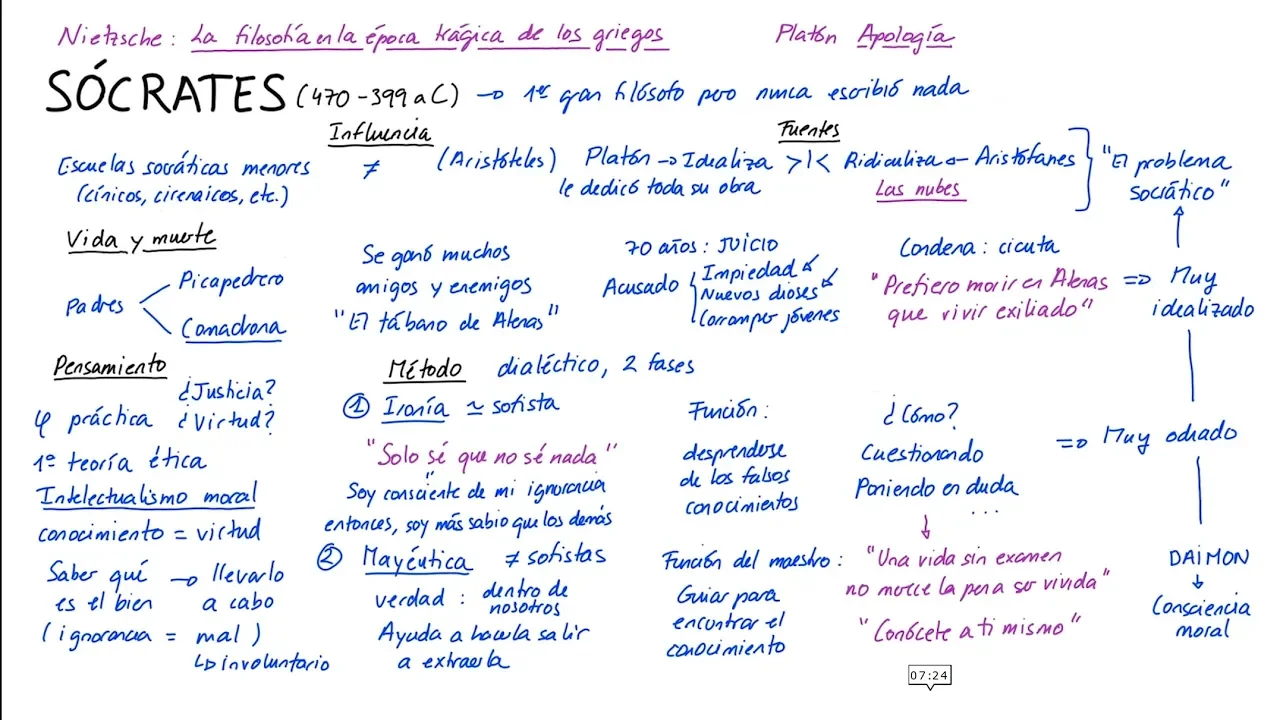 Nietzsche: La filosofía en la época trágica de los griegos
Platón Apología
SÓCRATES (470-399 a C) → 1er gran filósofo pero nunca escribió nada
Influencia
Escuelas socráticas menores ≠ (Aristóteles)
(cínicos, cirenaicos, etc.)
Fuentes
Platón → Idealiza >|< Ridiculiza ← Aristófanes
le dedicó toda su obra
Las nubes
"El problema
socrático"
Vida y muerte
Padres
Picapedrero
Comadrona
Se ganó muchos
amigos y enemigos
"El tábano de Atenas"
70 años: JUICIO
Acusado
Impiedad
Nuevos dioses
Corromper jóvenes
Condena: cicuta
"Prefiero morir en Atenas
que vivir exiliado"
⇒ Muy
idealizado
Pensamiento
¿Justicia?
φ práctica ¿Virtud?
1ª teoría ética
Intelectualismo moral
conocimiento = virtud
Saber qué → llevarlo
es el bien a cabo
(ignorancia = mal)
↳ involuntario
Método dialéctico, 2 fases
① Ironía ≃ sofista
"Solo sé que no sé nada"
Soy consciente de mi ignorancia
entonces, soy más sabio que los demás
② Mayéutica ≠ sofistas
verdad: dentro de
nosotros
Ayuda a hacerla salir
a extraerla
Función:
desprenderse
de los falsos
conocimientos
Función del maestro:
Guiar para
encontrar el
conocimiento
¿Cómo?
Cuestionando
Poniendo en duda
...
"Una vida sin examen
no merece la pena ser vivida"
"Conócete a ti mismo"
⇒ Muy odiado
DAIMON
↓
Consciencia
moral
07:24